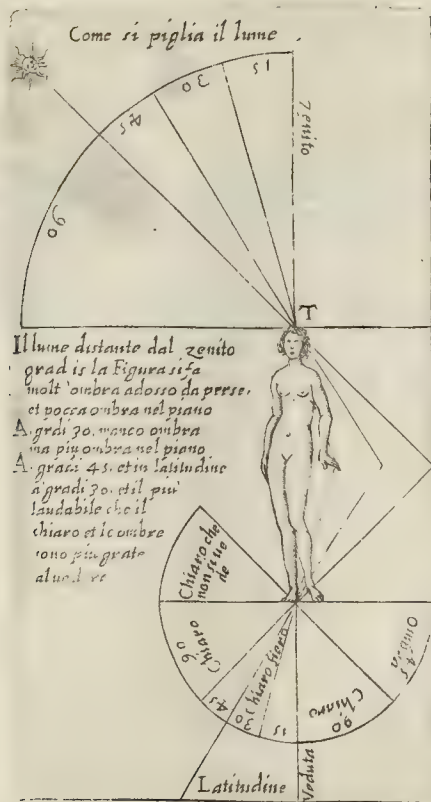 Come si piglia il lume
15
30
45
90
zenito
T
Il lume distante dal zenito
grad is la Figura si fa
molt'ombra adosso da perse,
et pocca ombra nel piano
A. grdi 30. manco ombra
ma piu ombra nel piano
A. gradi 45. et in latitudine
a gradi 30. et il piu
laudabile che il
chiaro et le ombre
sono piu grate
al
Chiaro che
non si ue
de
90
Chiaro
45
30
Chiaro fiero
15
90
Chiaro
45
Ombra
Latitudine
Veduta